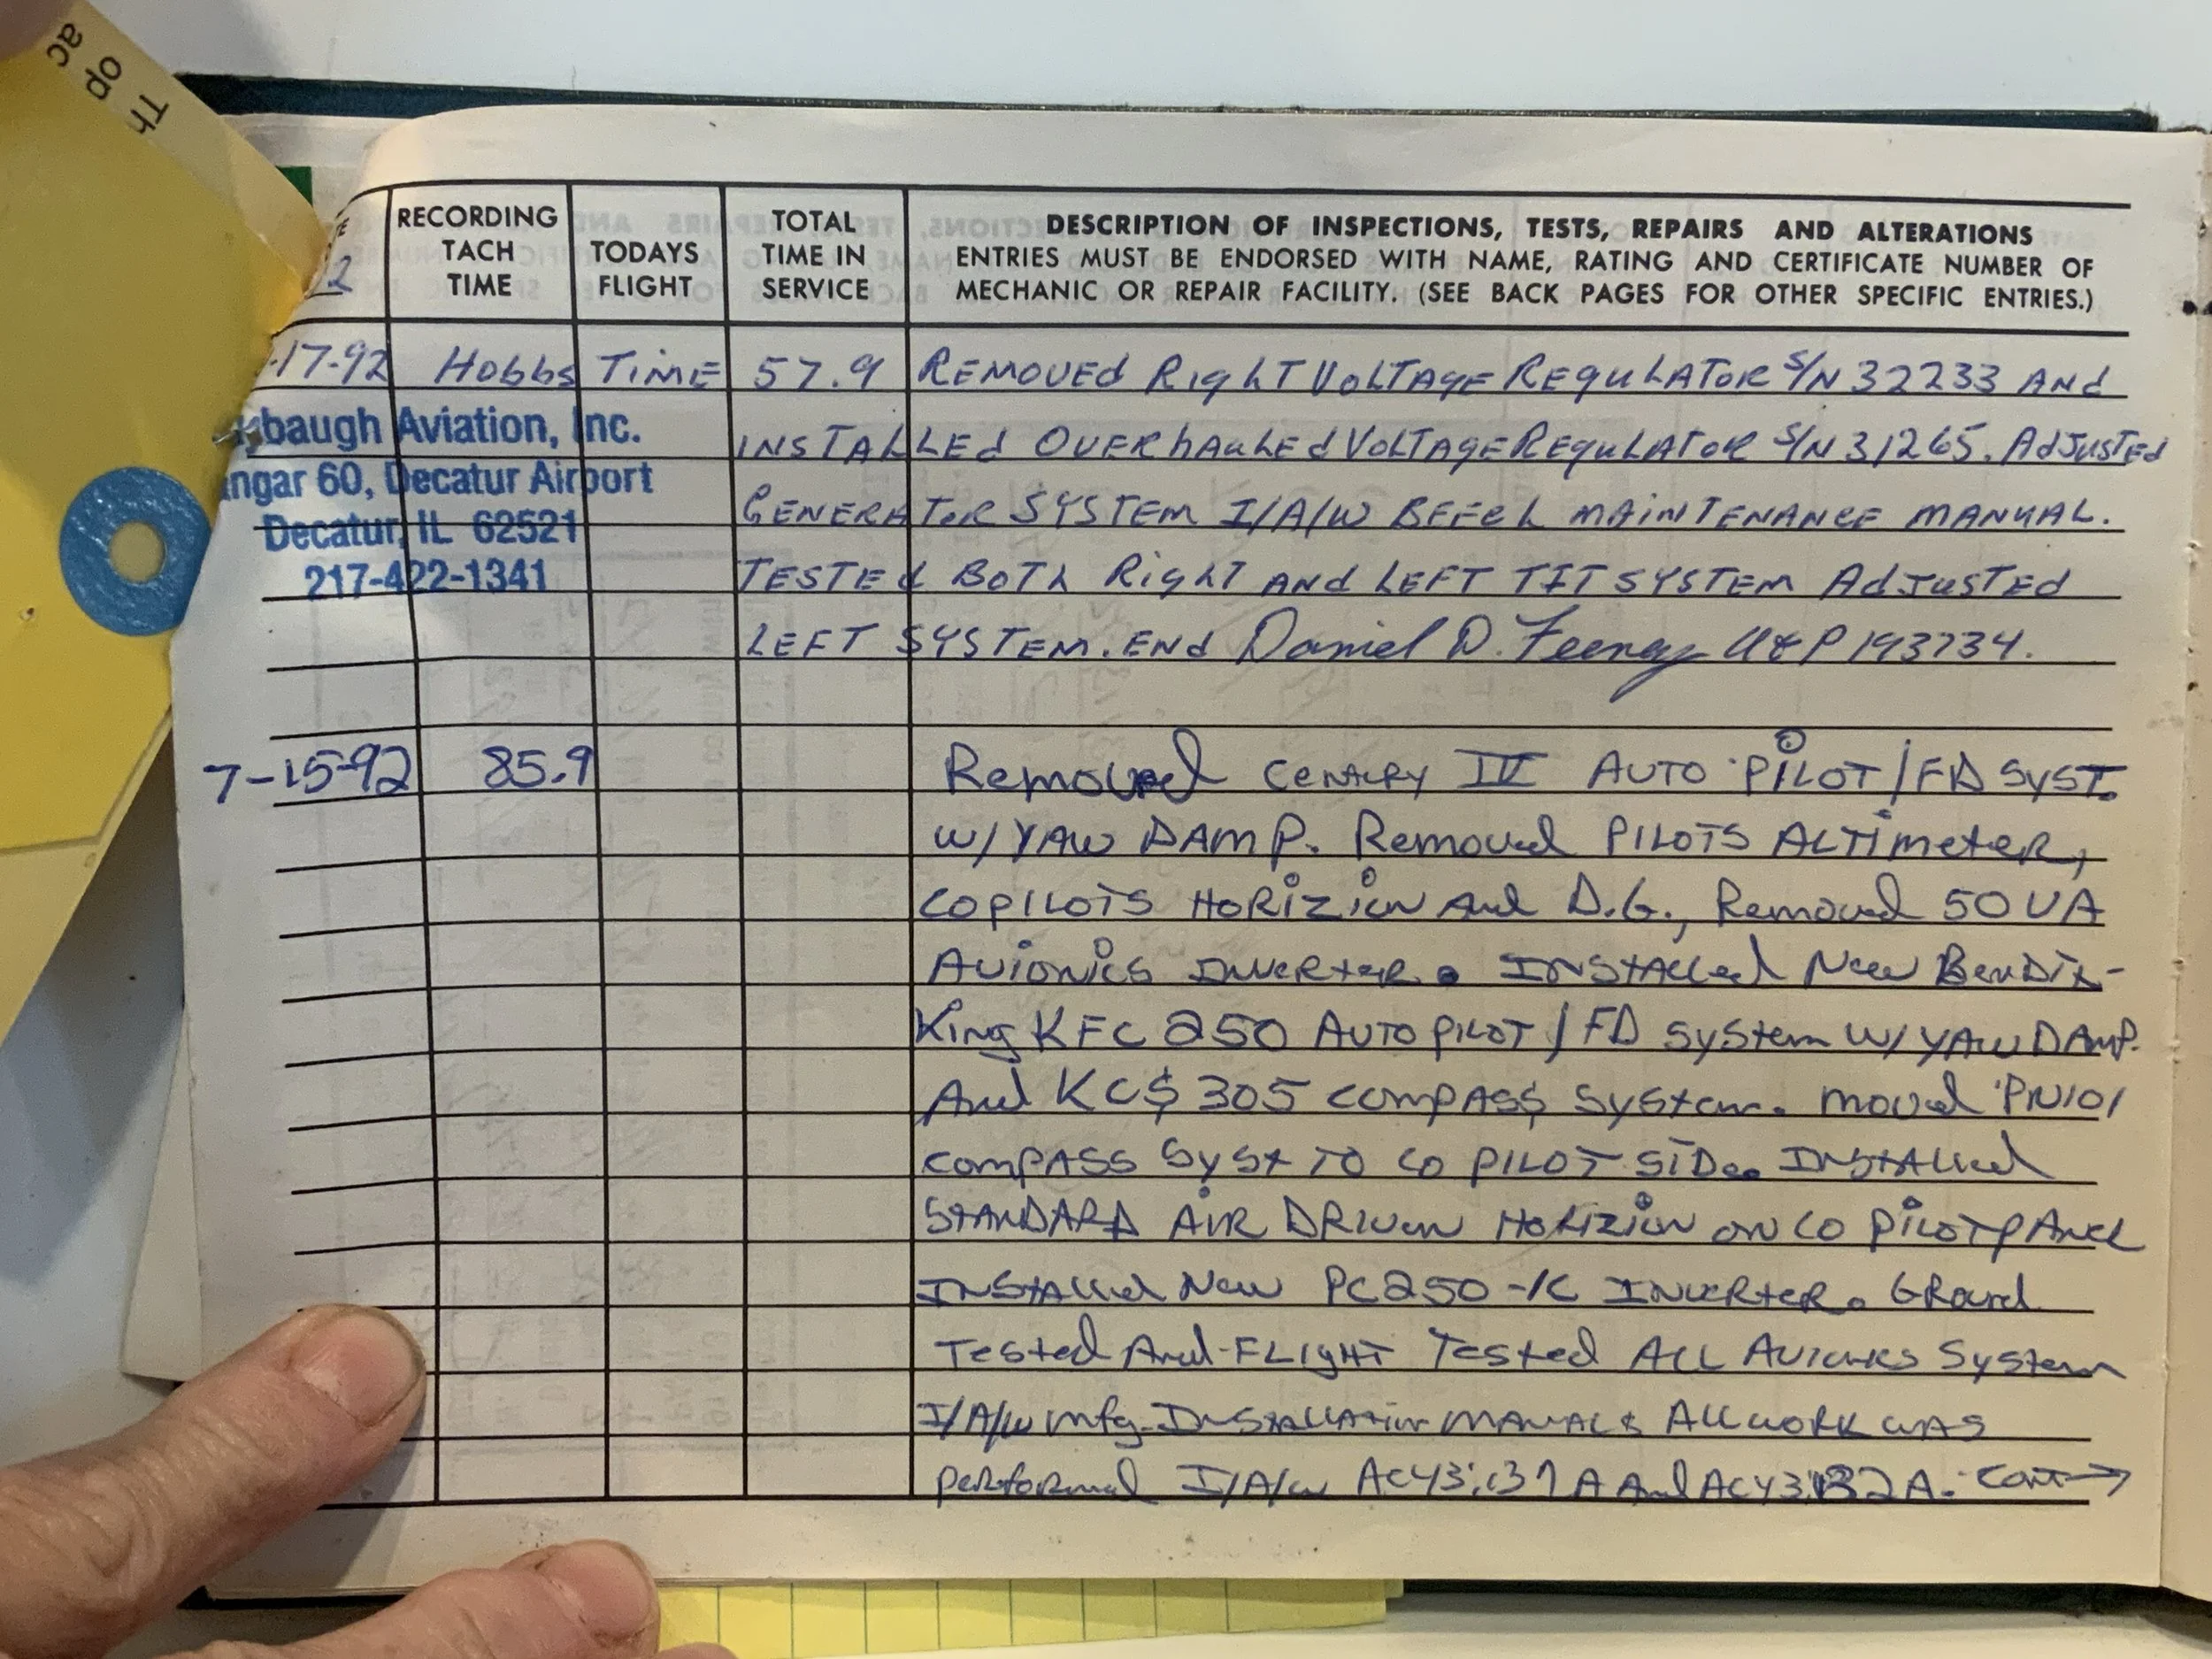 Th
op
ac
2
RECORDING TACH TIME
TODAYS FLIGHT
TOTAL TIME IN SERVICE
DESCRIPTION OF INSPECTIONS, TESTS, REPAIRS AND ALTERATIONS
ENTRIES MUST BE ENDORSED WITH NAME, RATING AND CERTIFICATE NUMBER OF
MECHANIC OR REPAIR FACILITY. (SEE BACK PAGES FOR OTHER SPECIFIC ENTRIES.)
-17-92 Hobbs TiME 57.9 REMOVEd RighT VOLTAgE REguLATOR S/N 32233 ANd
baugh Aviation, Inc.
INSTALLEd OVERhauLEd VoLTAgE REguLATOR S/N 31265. AdJusTEd
ngar 60, Decatur Airport
GENERATOR SYSTEM I/A/W BEECh MAiNTENANCE MANUAL.
Decatur, IL 62521
TESTEd BOTh RighT ANd LEFT TIT SYSTEM AdJusTEd
217-422-1341
LEFT SYSTEM. ENd Daniel D. Feeney A&P 193734.
7-15-92 85.9 Removed CENTURY IV AUTO PILOT/FD SYST.
W/ YAW DAMP. Removed PILOTS ALTimeteR,
COPILOTS HORIZION And D.G., Removed 50 VA
AVIONICS INVERTER. INSTALLed New BENDIX-
King KFC 250 AUTOPILOT/FD System W/ YAW DAMP.
And KCS 305 COMPASS System. moved PN101
COMPASS Syst TO CO PILOT SIDE. INSTALLed
STANDARD AIR DRIVEN HORIZION ON CO PILOT pANel
INSTALLed New PC250-1C INVERTER. GRound
Tested And FLIGHT Tested ALL AVIONICS System
I/A/W mfg. INSTALLATION MANUALS ALL WORK WAS
performed I/A/W AC43.131A And AC43.132A. Cont→